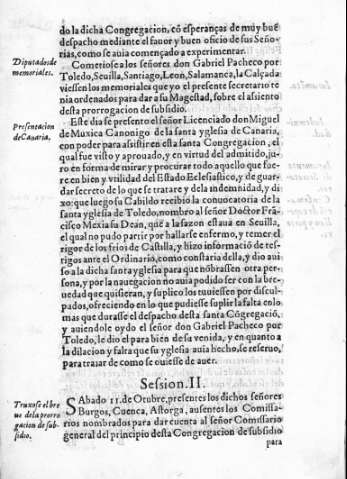 do la dicha Congregacion, cõ esperanças de muy bue
despacho mediante el fauor y buen oficio de sus Seño-
rias, como se auia començado a experimentar.
Diputados de
memoriales.
Cometiose a los señores don Gabriel Pacheco por
Toledo, Seuilla, Santiago, Leon, Salamanca, la Calçada
viessen los memoriales que yo el presente secretario te
nia ordenados para dar a su Magestad, sobre el assiento
desta prorrogacion de subsidio.
Presentacion
de Canaria.
Este dia se presento el señor Licenciado don Miguel
de Muxica Canonigo de la santa yglesia de Canaria,
con poder para assistir en esta santa Congregacion, el
qual fue visto y aprouado, y en virtud del admitido, ju-
ro en forma de mirar y procurar todo aquello que fue-
re en bien y vtilidad del Estado Eclesiastico, y de guar-
dar secreto de lo que se tratare y dela indemnidad, y di
xo: que luego su Cabildo recibio la conuocatoria de la
santa yglesia de Toledo, nombro al señor Doctor Frã-
cisco Mexia su Dean, que a la sazon estaua en Seuilla,
el qual no pudo partir por hallarse enfermo, y temer el
rigor de los frios de Castilla, y hizo informació de tes-
tigos ante el Ordinario, como constaria della, y dio aui
so a la dicha santa yglesia para que nõbrassen otra per-
sona, y por la nauegacion no auia podido ser con la bre-
uedad que quisieran, y suplico los tuuiessen por discul-
pados, ofreciendo en lo que pudiesse suplir la falta en lo
mas que durasse el despacho desta santa Cõgregació,
y auiendole oydo el señor don Gabriel Pacheco por
Toledo, le dio el para bien de sa venida, y en quanto a
la dilacion y falta que su yglesia auia hecho, se reseruo,
para tratar de como se ouiesse de auer.
Session. II.
Truxose el bre
ue dela prorro
gacion de sub-
sidio.
SAbado 11. de Otubre, presentes los dichos señores
Burgos, Cuenca, Astorga, ausentes los Comissa-
rios nombrados para dar cuenta al señor Comissario
general del principio desta Congregacion de subsidio
para